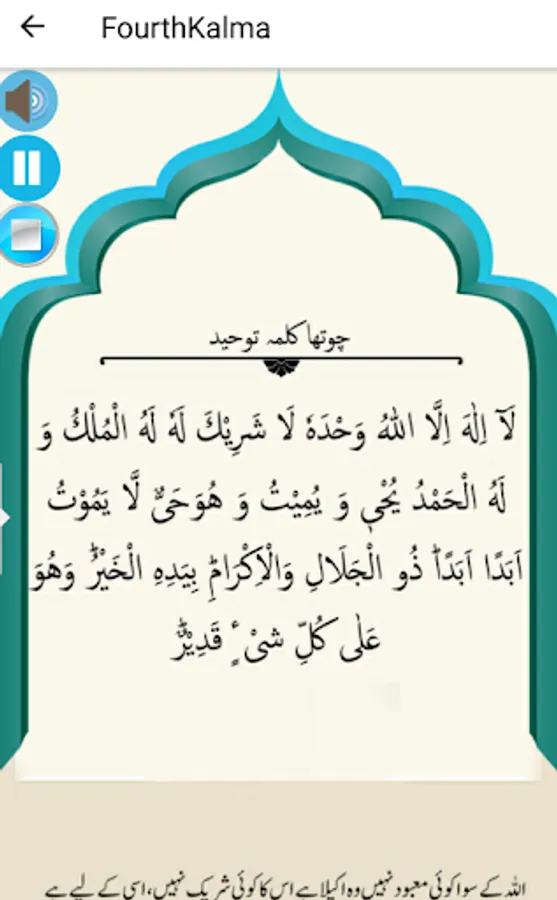 FourthKalma
چوتھا کلمہ توحید
لَآ اِلٰهَ اِلَّا اللهُ وَحْدَهٗ لَا شَرِيْكَ لَهٗ لَهُ الْمُلْكُ وَ
لَهُ الْحَمْدُ يُحْيٖ وَ يُمِيْتُ وَ هُوَحَیٌّ لَّا يَمُوْتُ
اَبَدًا اَبَدًاؕ ذُو الْجَلَالِ وَالْاِكْرَامِؕ بِيَدِهِ الْخَيْرُؕ وَهُوَ
عَلٰى كُلِّ شیْءٍ قَدِيْرٌؕ
اللہ کے سوا کوئی معبود نہیں وہ اکیلا ہے اس کا کوئی شریک نہیں، اسی کے لیے ہے